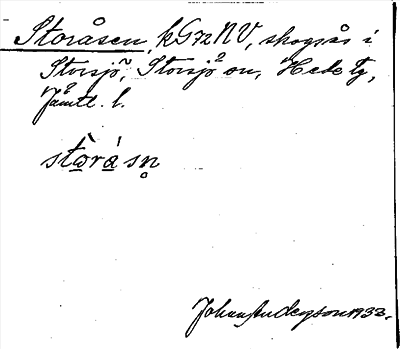 Storåsen, kG72NV, skogsås i
Storsjö, Storsjö sn, Hede tg,
Jämtl. l.
stòrá sn̥
Johan Anderson 1933.